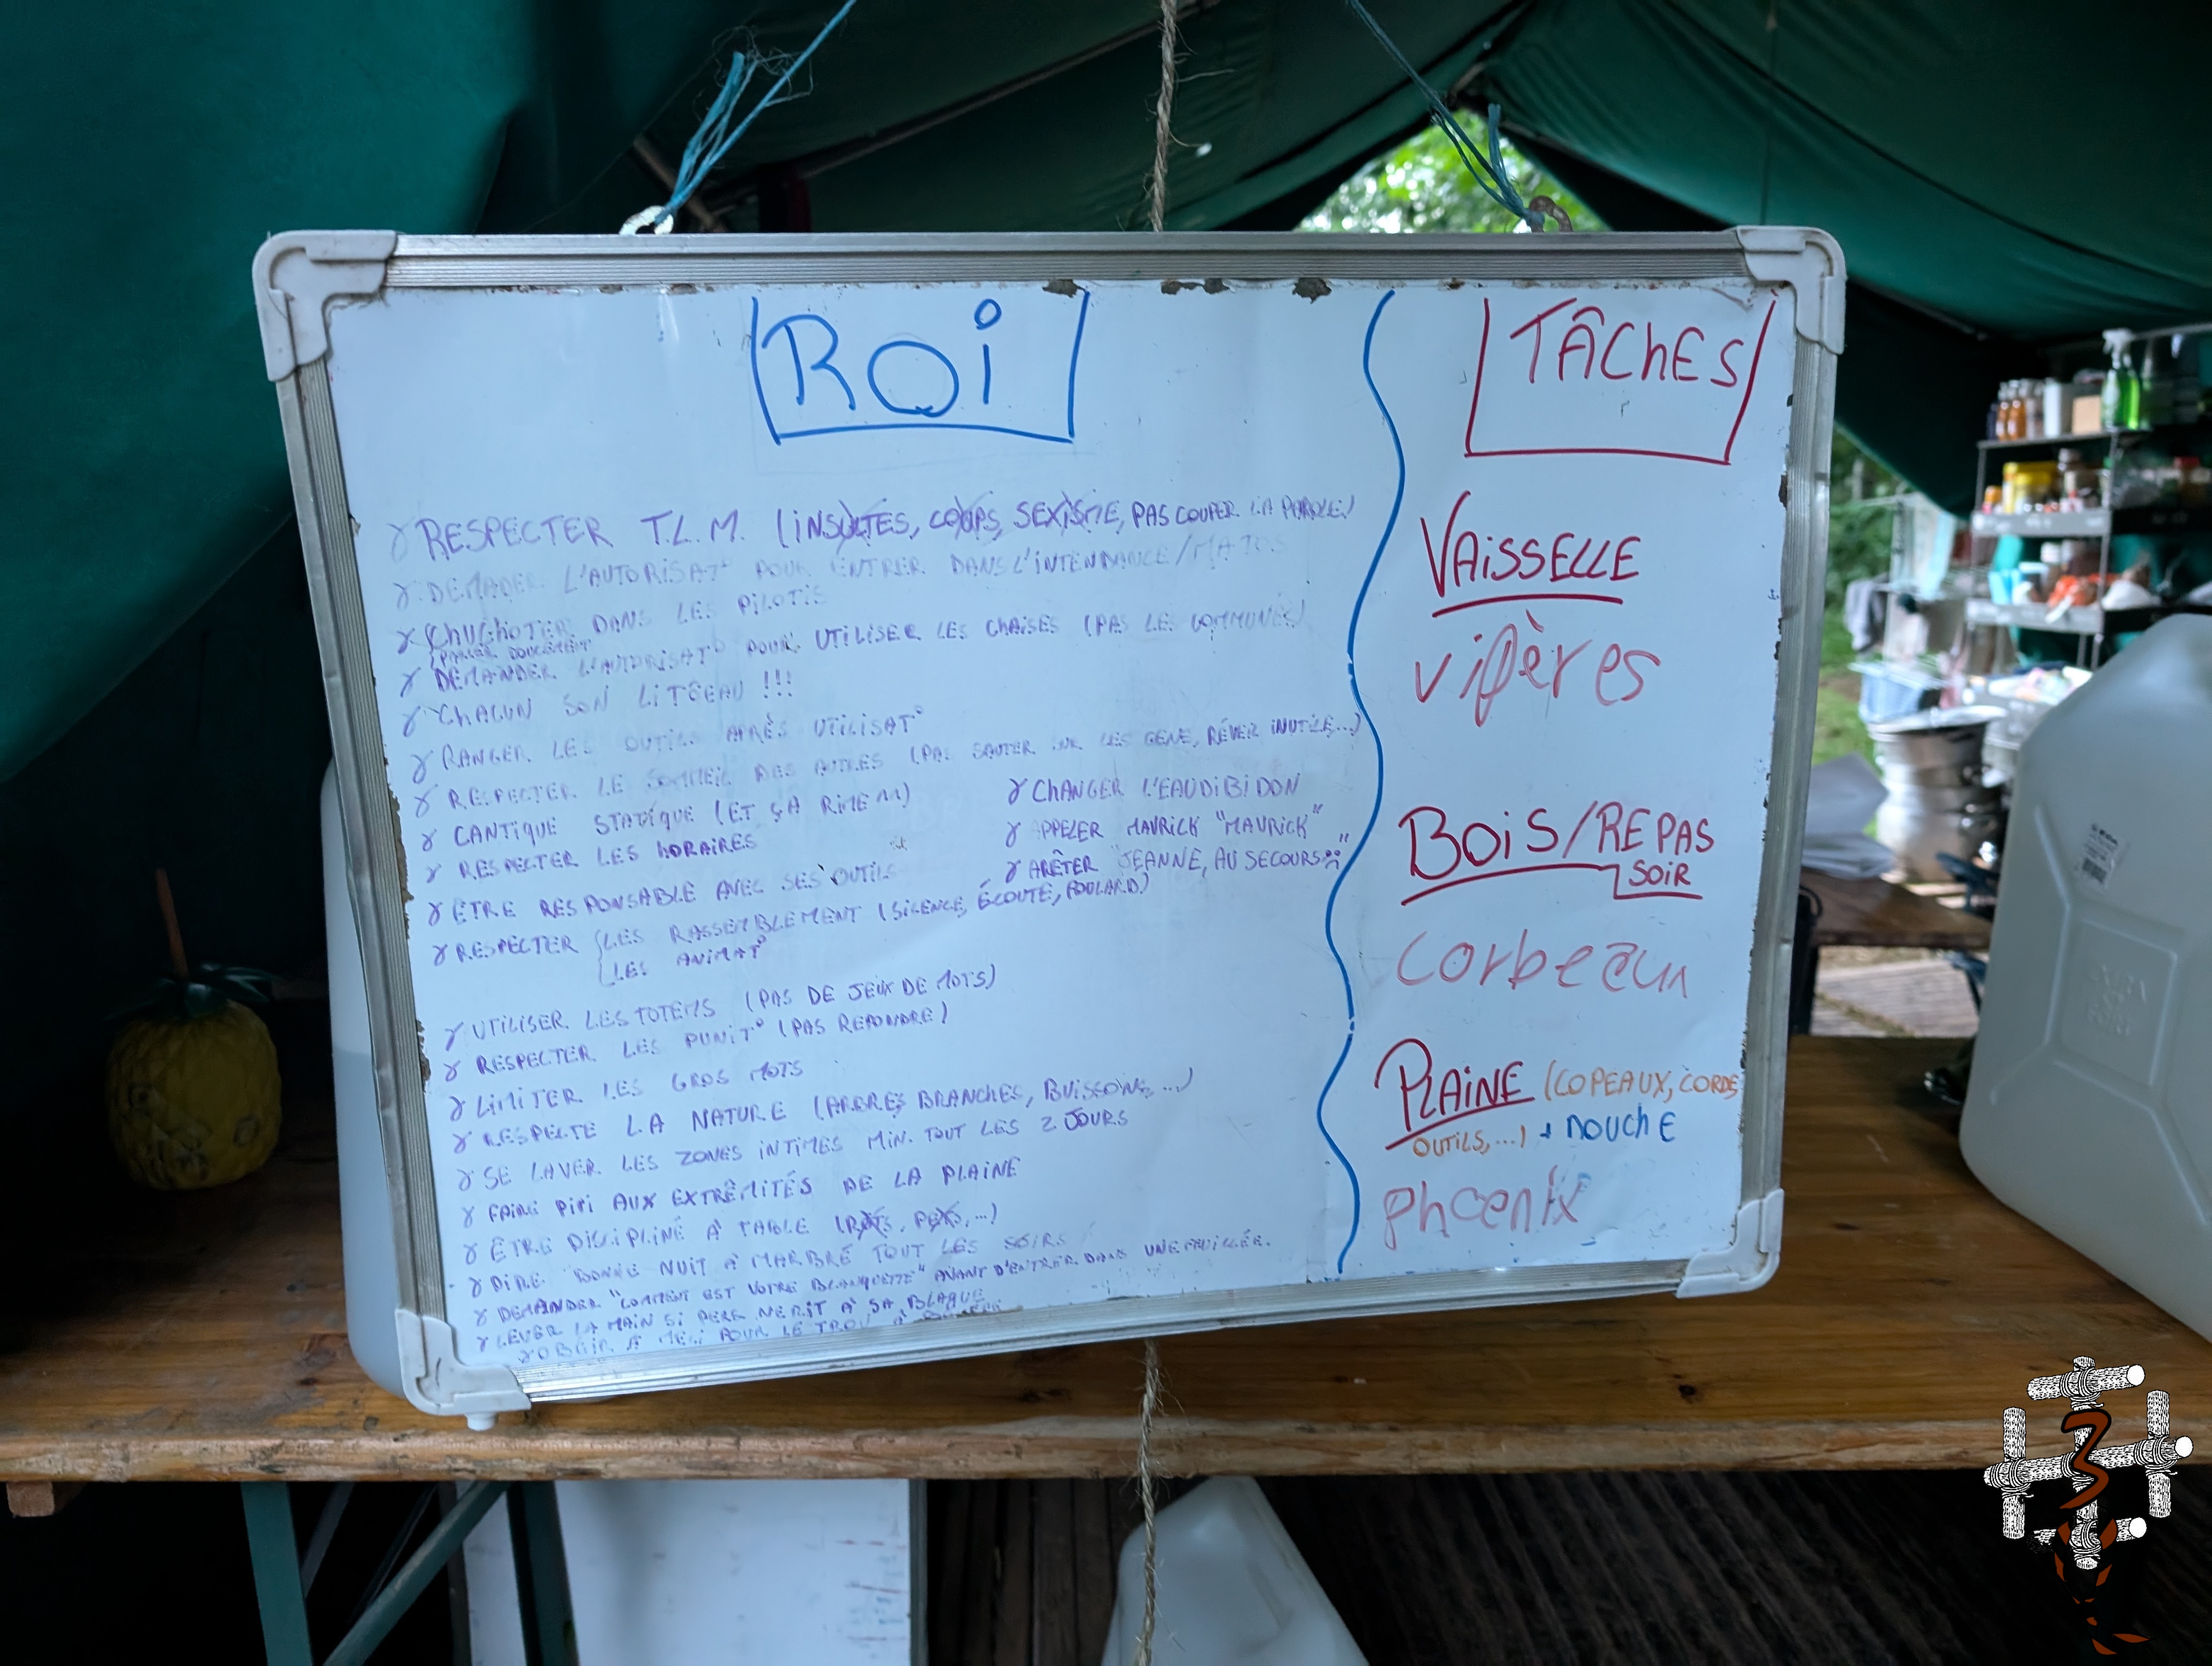 ROi
γ RESPECTER T.L.M. (iNSULTES, COUPS, SEXISME, PAS COUPER LA PAROLE)
γ DEMADER L'AUTORiSAT° POUR ENTRER DANS L'iNTENDANCE/MATOS
γ CHUCHOTER DANS LES PiLOTiS
(PARLER DOUCEMENT)
γ DEMANDER L'AUTORiSAT° POUR UTiLiSER LES CHAiSES (PAS LES COMMUNES)
γ CHACUN SON LiTEEAU !!!
γ RANGER LES OUTiLS APRÈS UTiLiSAT°
γ RESPECTER LE SOMMEiL DES AUTRES (PAS SAUTER SUR LES GENS, RÉVEiR iNUTiLE...)
γ CANTiQUE STATiQUE (ET ÇA RiME)
γ RESPECTER LES HORAiRES
γ ÊTRE RESPONSABLE AVEC SES OUTiLS
γ CHANGER L'EAUDiBiDON
γ APPELER MAVRiCK "MAVRiCK"
γ ARÊTER "JEANNE, AU SECOURS"
γ RESPECTER { LES RASSEMBLEMENT (SiLENCE, ÉCOUTE, FOULARD)
LES ANiMAT°
γ UTiLiSER LES TOTEMS (PAS DE JEUX DE MOTS)
γ RESPECTER LES PUNiT° (PAS REPONDRE)
γ LiMiTER LES GROS MOTS
γ RESPECTE LA NATURE (ARBRES, BRANCHES, BUiSSONS, ...)
γ SE LAVER LES ZONES iNTiMES MiN. TOUT LES 2 JOURS
γ FAiRE PiPi AUX EXTRÊMiTÉS DE LA PLAiNE
γ ÊTRE DiSCiPLiNÉ À TABLE (ROTS, PETS, ...)
γ DiRE BONNE NUiT À MARBRÉ TOUT LES SOiRS
γ DEMANDER "COMMENT EST VOTRE BLANQUETTE" AVANT D'ENTRER DANS UNE FEUiLLÉE.
γ LEVER LA MAiN Si PERS NE RiT À SA BLAGUE
γ OBEiR À POUR LE TROU À
TÂCHES
VAiSSELLE
vipères
BOiS/REPAS
SOiR
corbeau
PLAiNE (COPEAUX, CORDE,
OUTiLS, ...) + DOUCHE
phoenix
3